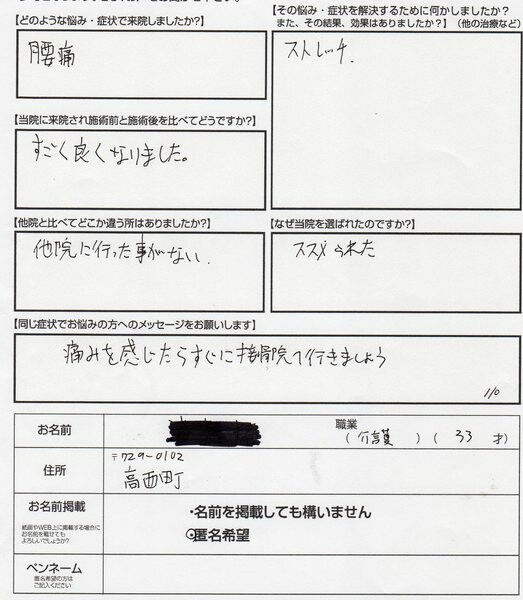 【どのような悩み・症状で来院しましたか?】
腰痛
【その悩み・症状を解決するために何かしましたか?
また、その結果、効果はありましたか?】(他の治療など)
ストレッチ
【当院に来院され施術前と施術後を比べてどうですか?】
すごく良くなりました。
【他院と比べてどこか違う所はありましたか?】
他院に行った事がない
【なぜ当院を選ばれたのですか?】
ススメられた
【同じ症状でお悩みの方へのメッセージをお願いします】
痛みを感じたらすぐに接骨院へ行きましょう
1/0
お名前
職業
(介護)(33才)
住所
〒729-0102
高西町
お名前掲載
紙面やWEB上に掲載する場合に
お名前を載せても
よろしいでしょうか?
・名前を掲載しても構いません
・匿名希望
ペンネーム
匿名希望の方は
ご記入ください